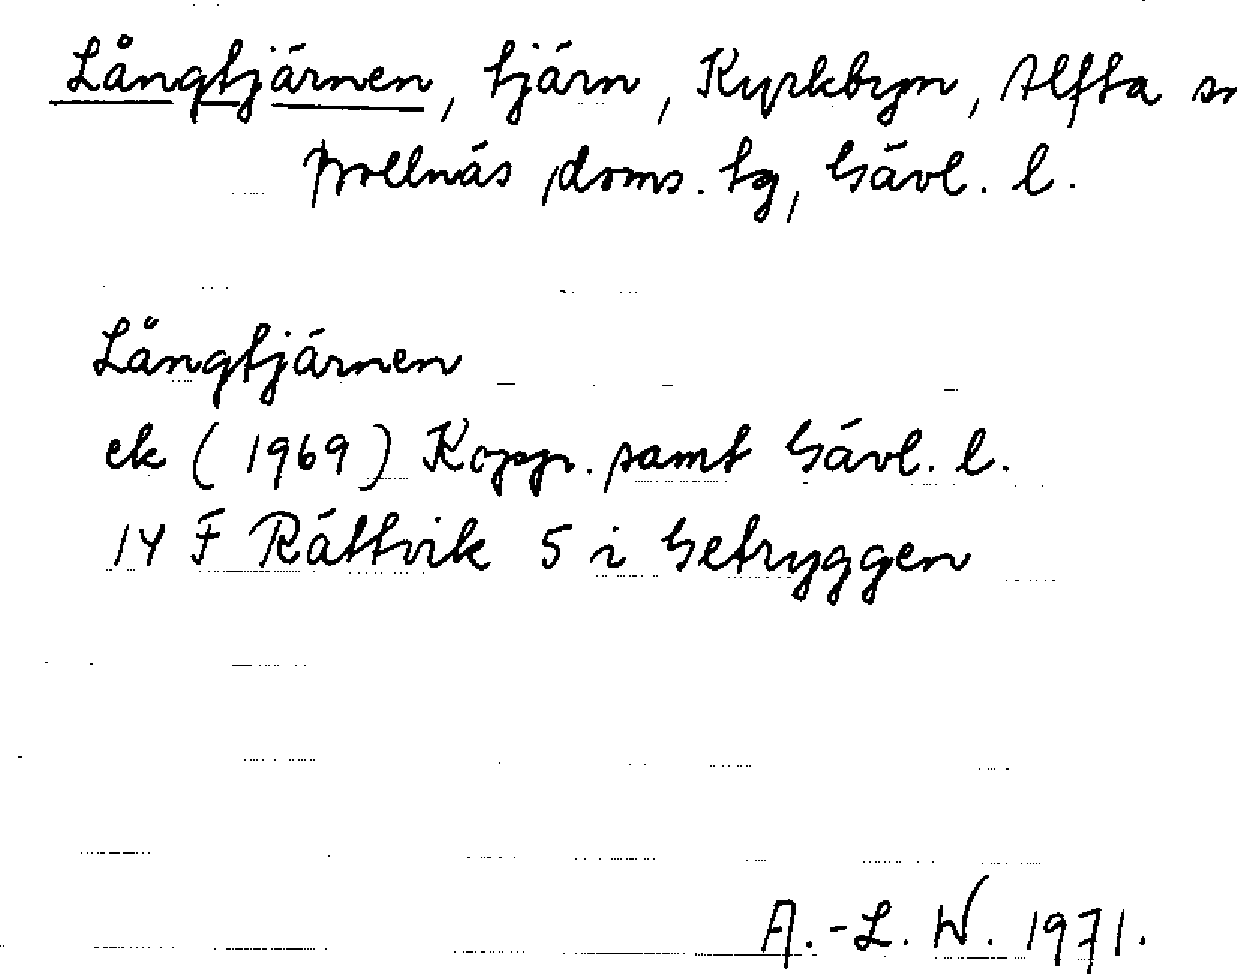 Långtjärnen, tjärn, Kyrkbyn, Alfta sn
Bollnäs doms. tg, Gävl. l.
Långtjärnen
ek (1969) Kopp. samt Gävl. l.
14 F Rättvik 5 i Getryggen
A.-L. W. 1971.